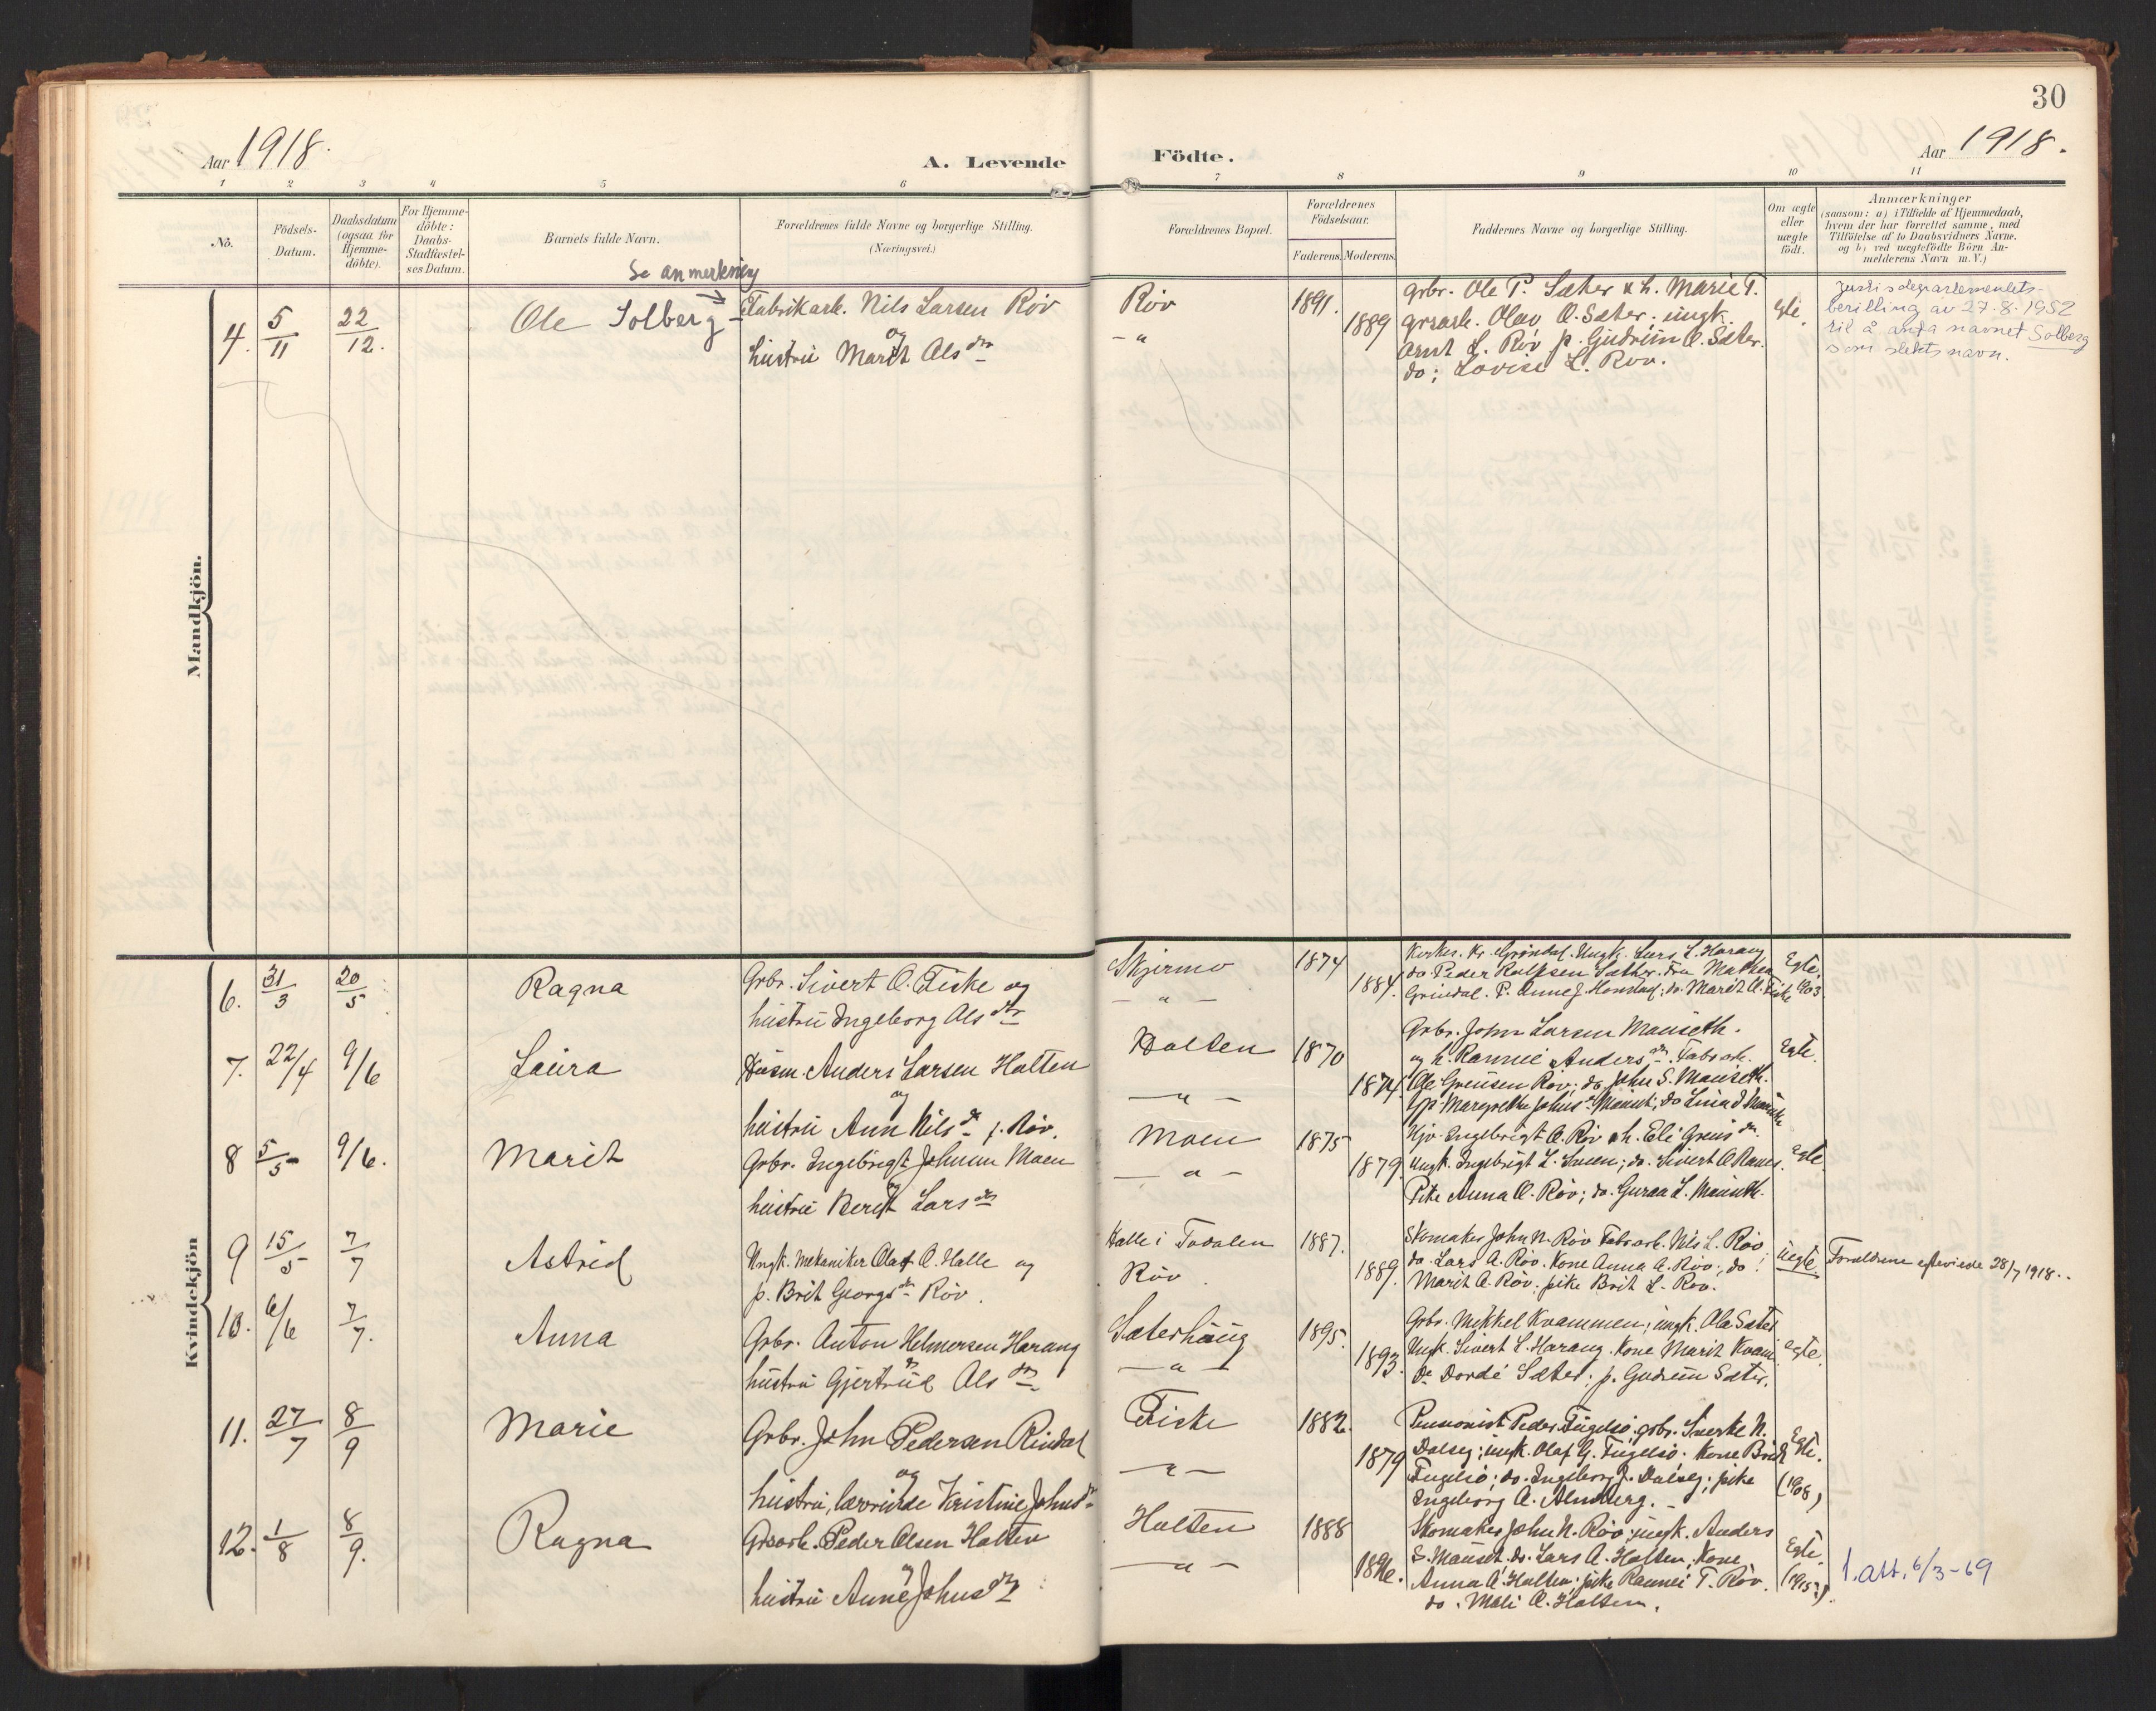 30
Aar 1918.
A. Levende Födte.
Aar 1918.
1 2 3 4 5 6 7 8 9 10 11
No.
Födsels-Datum.
Daabsdatum (ogsaa for Hjemme-döbte).
For Hjemme-döbte: Daabs-Stadfæstel-ses Datum.
Barnets fulde Navn.
Forældrenes fulde Navne og borgerlige Stilling.
(Næringsvei.)
Forældrenes Bopæl.
Forældrenes Födselsaar.
Faderens. Moderens.
Faddernes Navne og borgerlige Stilling.
Om ægte eller uægte födt.
Anmærkninger
(saasom: a) i Tilfælde af Hjemmedaab,
hvem der har forrettet samme, med
Tilföielse af to Daabsvidners Navne.
og b) ved uægtefödte Börn An-
melderens Navn m. V.)
Mandkjön.
Se anmerkning
4. 5/11 22/12. Ole Solberg Fabrikarb. Nils Larsen Röv
og
hustru Marit Alsdtr
Röv
- " -
1891.
1889
Grbr. Ole P. Sæther & h. Marie T.
Grsarb. Olav O. Sæter. ungk.
Arnt L. Röv p. Gudrun O. Sæter.
do; Lovise L. Röv.
Egte.
Justisdepartementets-
bevilling av 27.8.1952
til å anta navnet Solberg
som slektsnavn.
Kvindekjön
6. 31/3 20/5 Ragna Grbr. Sivert O. Fiske og
hustru Ingeborg Alsdtr
Skjermo
- " -
1874
1884.
Kirkes. Kr. Grindal. Ungk. Lars L. Harang
do. Peder Rolfsen Sæther. Fru Mathea
Grindal. P. Anne J. Honstad; do. Marit O. Fiske
Egte.
1903
7. 22/4 9/6 Laura Husm. Anders Larsen Halten
og
hustru Ann Nilsdtr f. Röv.
Halten
- " -
1870
1874
Grbr. John Larsen Mauseth.
og h. Rannei Andersdtr. Fabrarb.
Ole Greusen Röv; do John S. Mauseth.
Egte.
8 5/5 9/6. Marit Grbr. Ingebrigt Johnsen Moen
og
hustru Berit Larsdtr
Moen
- " -
1875
1879
Kjv. Ingebrigt O. Röv & h. Eli Greusdtr.
Ungk. Ingebrigt L. Moen; do. Sivert O. Ranes.
Pike Anna O. Röv; do. Guraa L. Mauseth.
Egte.
9 15/5 7/7 Astrid Ungk. mekaniker Olaf O. Halle og
p. Brit Georgsdtr Röv.
Halle i Todalen
Röv
1887.
1889.
Skomaker John N. Röv Fabrarb. Nils L. Röv
do. Lars A. Röv. Kone Anna A. Röv; do!
Marit A. Röv; pike Brit L. Röv.
Uegte
Forældrene egteviede 28/7 1918.
10. 6/6 7/7. Anna Grbr. Anton Helmersen Harang
og
hustru Gjertrud Alsdtr
Sæterhaug
- " -
1895.
1893.
Grbr. Mikkel Kvammen; ungk. Ola Sæter
Ungk. Sivert L. Harang. Kone Marit Kvam.
Do Dordé Sæter; p. Gudrun Sæter.
Egte.
11. 27/7 8/9 Marie Grbr. John Pedersen Rindal
og
hustru, lærerinde Kristine Johnsdtr
Fiske
- " -
1882.
1879
Pensionist Peder Fugelsö, grbr. Sverke N.
Dalseg; ungk. Olaf G. Fugelsö. Kone Brit
Fugelsö; do. Ingeborg J. Dalseg; pike
Ingeborg A. Almberg.
Egte.
(1908)
12. 1/8 8/9. Ragna Grsarb. Peder Olsen Halten
og
hustru Anne Johnsdtr
Halten
- " -
1888
Skomaker John N. Röv; ungk. Anders
S. Mauset. do. Lars A. Halten; Kone
Anna A. Halten; pike Rannei T. Röv.
do. Mali O. Halten.
Egte.
(1915)
1. att. 6/3-69